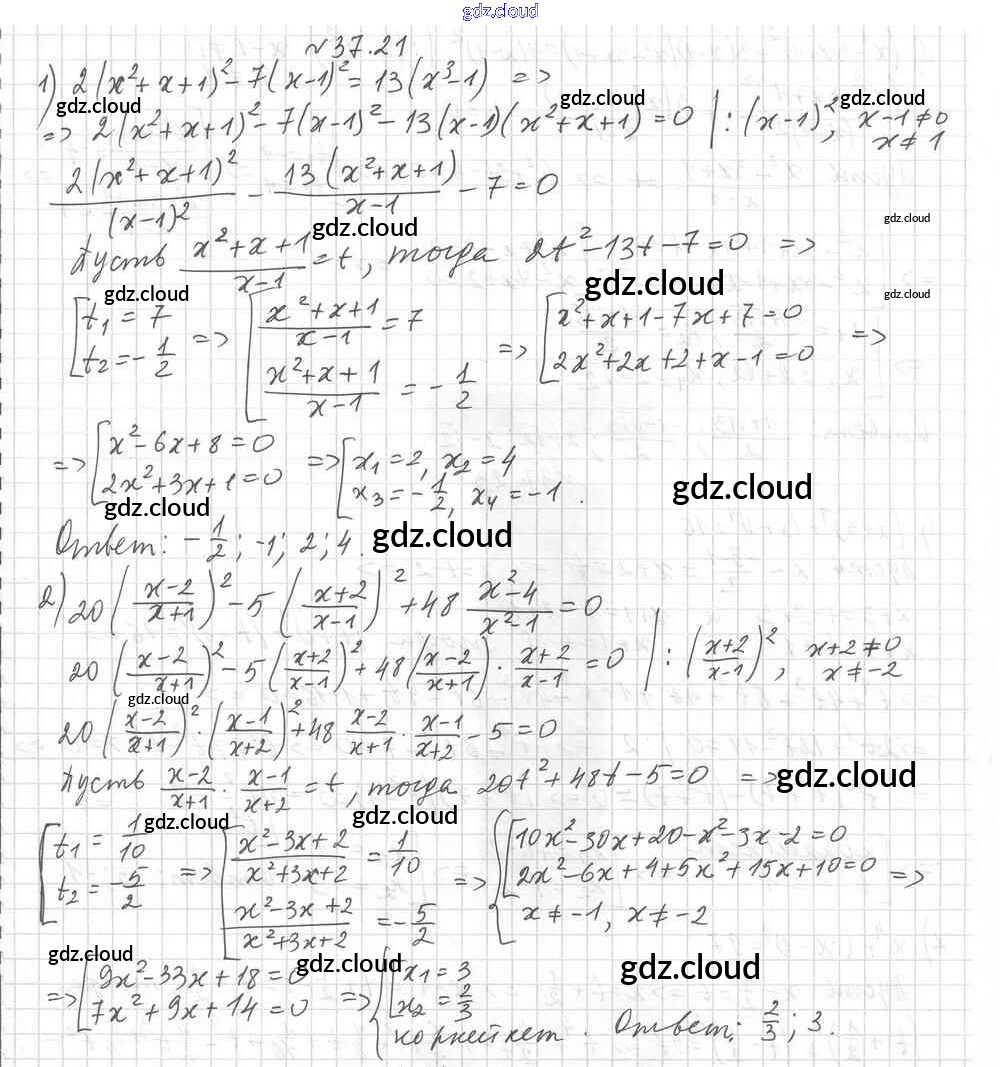 gdz.cloud
№ 37.21
1) 2(x²+x+1)² - 7(x-1)² = 13(x³-1) =>
gdz.cloud gdz.cloud gdz.cloud
=> 2(x²+x+1)² - 7(x-1)² - 13(x-1)(x²+x+1) = 0 | : (x-1)², x-1≠0
x≠1
2(x²+x+1)²/(x-1)² - 13(x²+x+1)/(x-1) - 7 = 0
gdz.cloud gdz.cloud
Пусть (x²+x+1)/(x-1) = t, тогда 2t²-13t-7=0 =>
gdz.cloud gdz.cloud gdz.cloud
[t₁ = 7 => [(x²+x+1)/(x-1) = 7 => [x²+x+1-7x+7=0 =>
t₂ = -1/2 (x²+x+1)/(x-1) = -1/2 2x²+2x+2+x-1=0
=> [x²-6x+8=0 => [x₁=2, x₂=4
2x²+3x+1=0 x₃=-1/2, x₄=-1.
gdz.cloud gdz.cloud
Ответ: -1/2; -1; 2; 4.
gdz.cloud
2) 20((x-2)/(x+1))² - 5((x+2)/(x-1))² + 48 (x²-4)/(x²-1) = 0
20((x-2)/(x+1))² - 5((x+2)/(x-1))² + 48((x-2)/(x+1) · (x+2)/(x-1) = 0 | : ((x+2)/(x-1))², x+2≠0
x≠-2
gdz.cloud
20((x-2)/(x+1))² · ((x-1)/(x+2))² + 48 (x-2)/(x+1) · (x-1)/(x+2) - 5 = 0
Пусть (x-2)/(x+1) · (x-1)/(x+2) = t, тогда 20t²+48t-5=0 =>
gdz.cloud
gdz.cloud gdz.cloud
[t₁ = 1/10 => [(x²-3x+2)/(x²+3x+2) = 1/10 => {[10x²-30x+20-x²-3x-2=0 =>
t₂ = -5/2 (x²-3x+2)/(x²+3x+2) = -5/2 2x²-6x+4+5x²+15x+10=0
x≠-1, x≠-2
gdz.cloud gdz.cloud gdz.cloud
=> [9x²-33x+18=0 => {[x₁=3
7x²+9x+14=0 x₂=2/3
корней нет. Ответ: 2/3; 3.